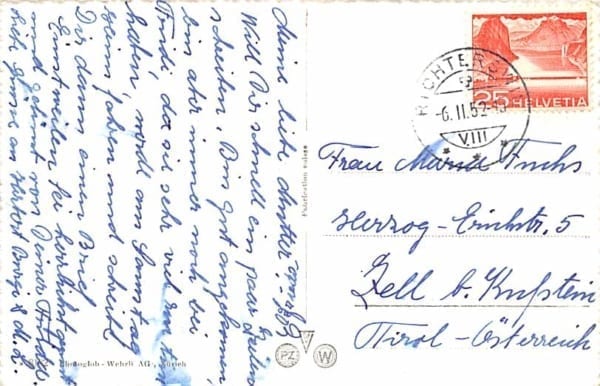 Meine liebe Mutter!
Will Dir schnell ein paar Zeilen
schreiben. Bin gut angekommen,
bin aber immer noch bei
Trudi, da sie sehr viel zu tun
hat, werde am Samstag
heim fahren und schreibe
Dir dann einen Brief.
Einstweilen sei herzlichst gegrüsst
und geküsst von Deiner
Photoglob-Wehrli AG., Zürich
PZ
W
RICHTERSWIL
-6.II.52-
VIII
25 HELVETIA
Frau Maria Fuchs
Herzog-Erichstr. 5
Zell b. Kufstein
Tirol-Österreich